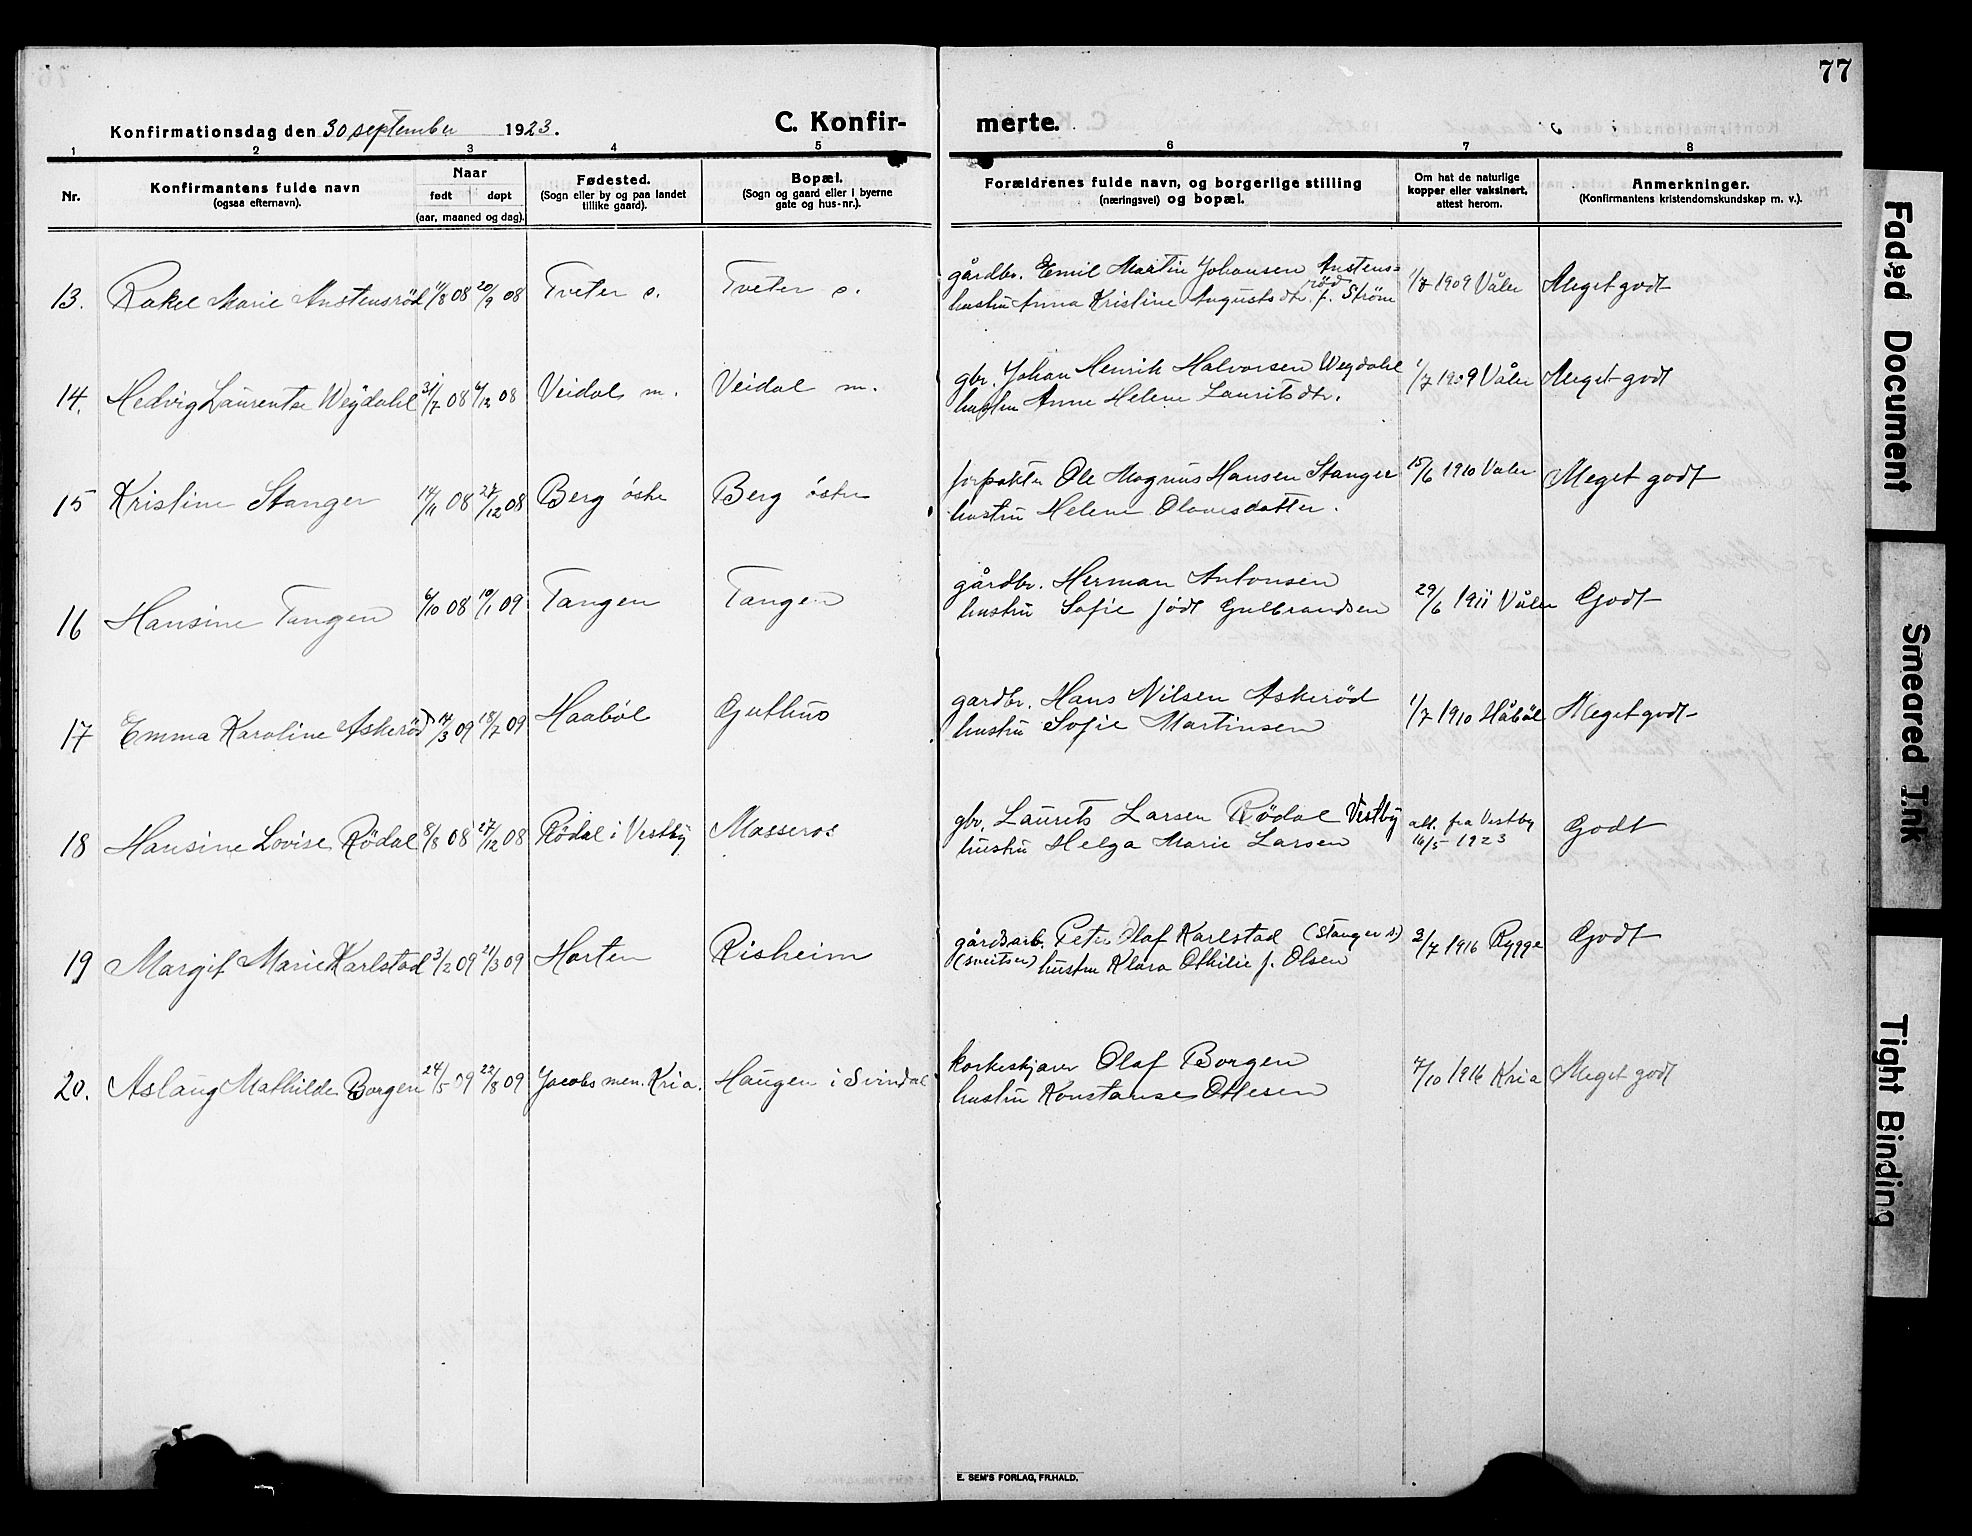 77
Konfirmationsdag den 30 september 1923.
C. Konfir-
merte.
1 2 3 4 5 6 7 8
Nr.
Konfirmantens fulde navn
(ogsaa efternavn).
Naar
født døpt
(aar, maaned og dag).
Fødested.
(Sogn eller by og paa landet
tillike gaard).
Bopæl.
(Sogn og gaard eller i byerne
gate og hus-nr.).
Forældrenes fulde navn, og borgerlige stilling
(næringsvei) og bopæl.
Om hat de naturlige
kopper eller vaksinert,
attest herom.
Anmerkninger.
(Konfirmantens kristendomskundskap m. v.).
13. Rakel Marie Anstensröd 11/8 08 20/9 08 Tveter ø. Tveter ø.
gårdbr. Emil Martin Johansen Anstens=
röd
hustru Anna Kristine Augustsdtr. f. Ström
1/7 1909 Våler Meget godt
14. Hedvig Laurentse Weydahl 31/7 08 6/12 08 Veidal m. Veidal m.
gbr. Johan Henrik Halvorsen Weydahl
hustru Anne Helene Lauritsdtr.
1/7 1909 Våler Meget godt
15 Kristine Stanger 14/11 08 27/12 08 Berg östre Berg östre
forpakter Ole Magnus Hansen Stanger
hustru Helene Olavesdatter.
15/6 1910 Våler Meget godt
16 Hansine Tangen 6/10 08 10/1 09 Tangen Tangen
gårdbr. Herman Antonsen
hustru Sofie födt Gulbrandsen
29/6 1911 Våler Godt
17 Emma Karoline Askeröd 14/3 09 18/7 09 Haabøl Guthus
gardbr. Hans Nilsen Askeröd
hustru Sofie Martinsen
1/7 1910 Håbøl Meget godt
18 Hansine Lovise Rödal 8/8 08 27/12 08 Rödal i Vestby Masseros
gbr. Laurits Larsen Rödal Vestby
hustru Helga Marie Larsen
att. fra Vestby
16/5 1923
Godt
19 Margit Marie Karlstad 3/2 09 21/3 09 Horten Risheim
gårdsarb. Peter Olaf Karlstad (Stanger s)
(sveitser) hustru Klara Othilie f. Olsen
3/7 1916 Rygge Godt
20. Aslaug Mathilde Borgen 24/5 09 22/8 09 Jacobs men. Kria. Haugen i Svindal
korkeskjærer Olaf Borgen
hustru Konstanse Ottesen
7/10 1916 Kria Meget godt
E. SEM'S FORLAG, FR.HALD.
Faded Document
Smeared Ink
Tight Binding